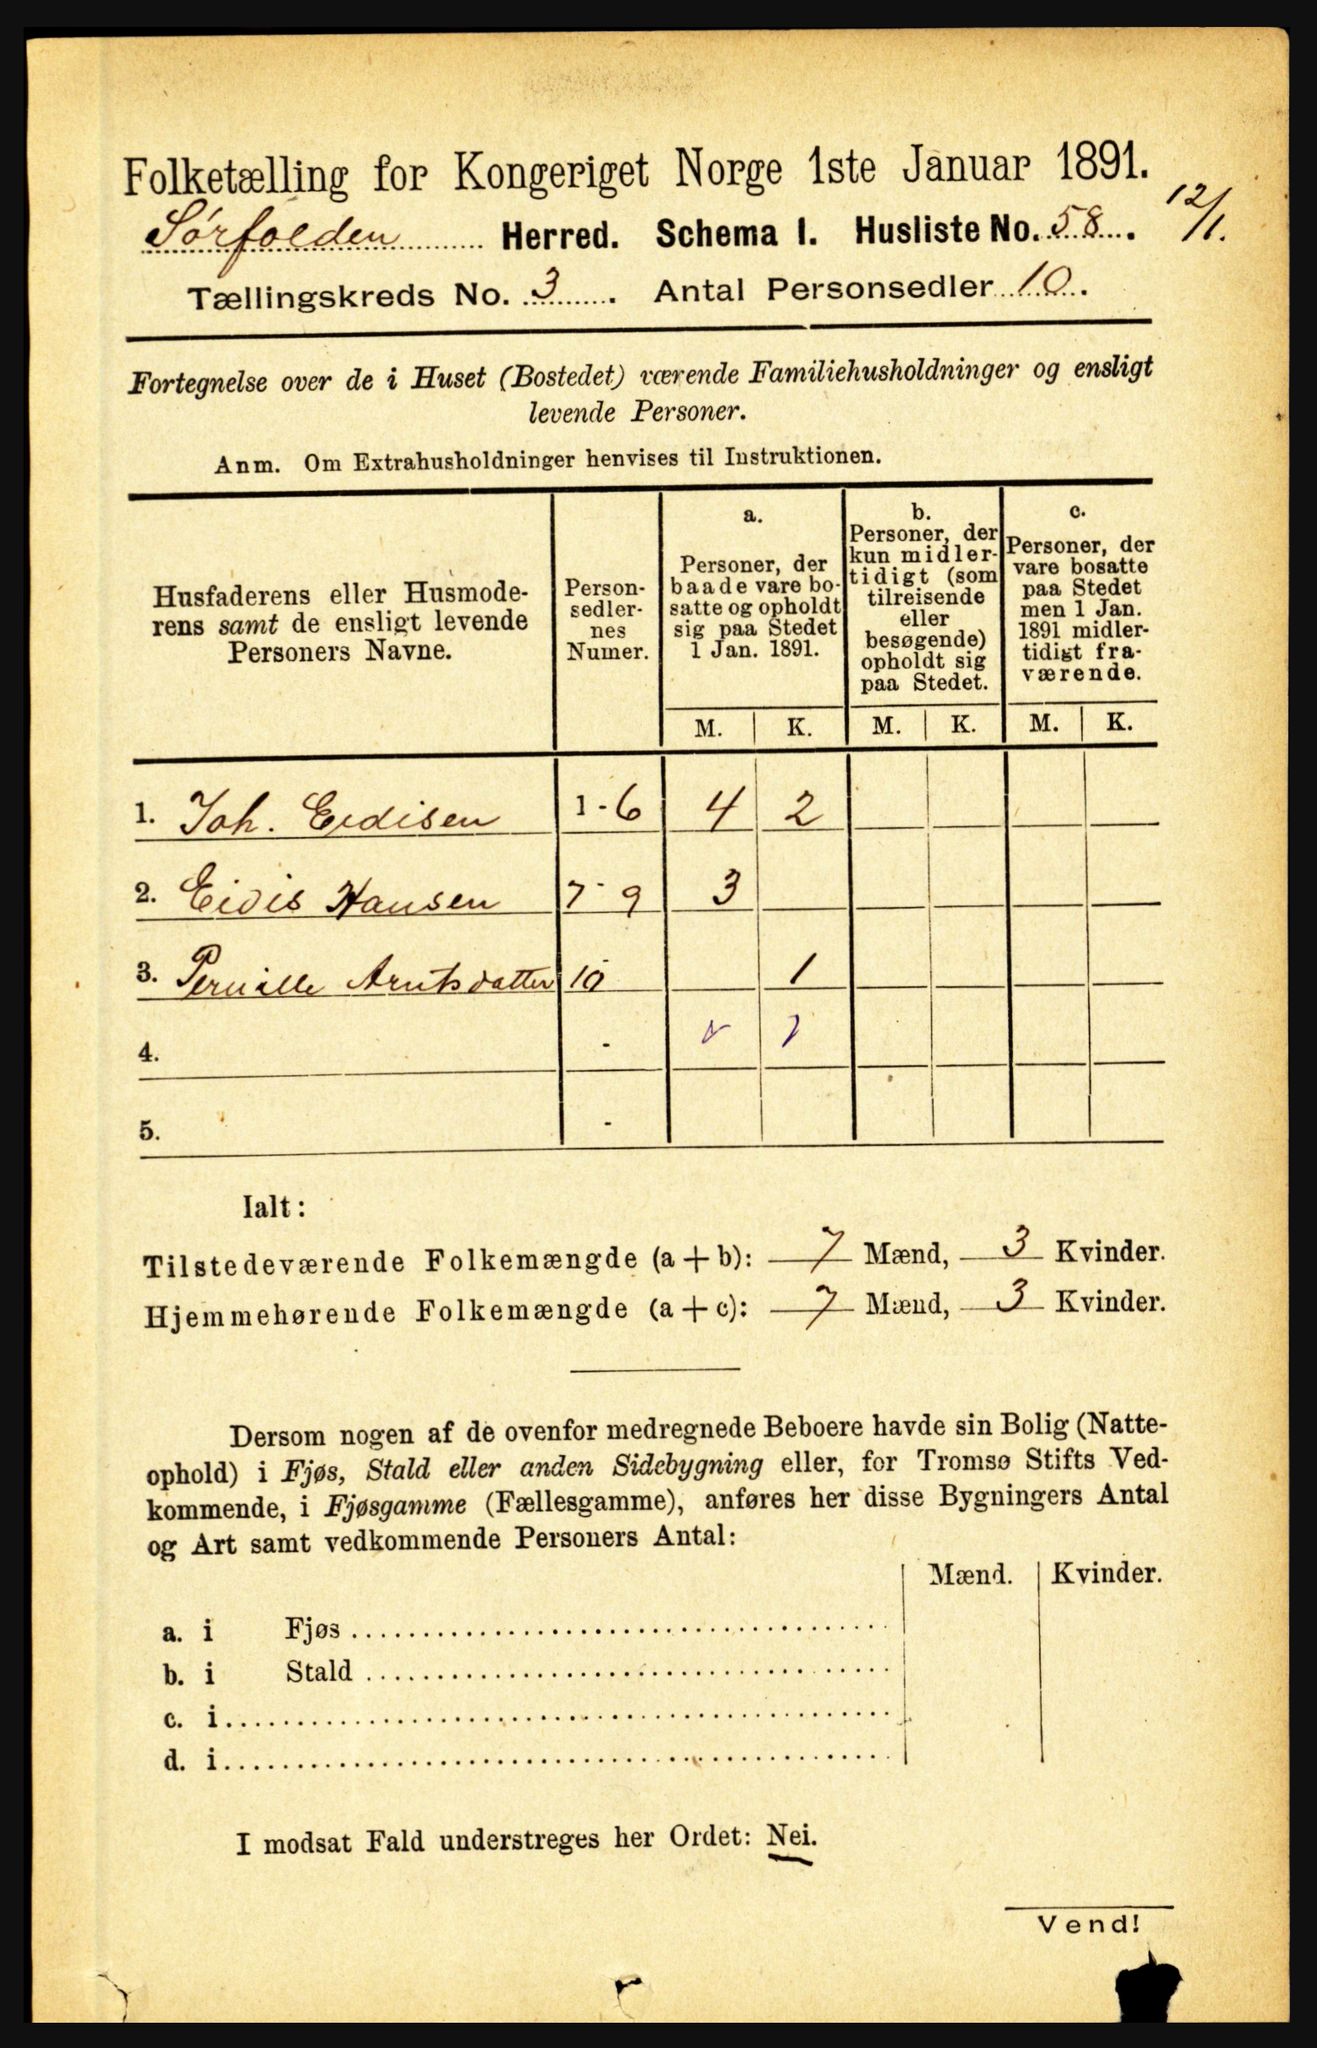 Folketælling for Kongeriget Norge 1ste Januar 1891.
12/1.
Sørfolden Herred. Schema I. Husliste No. 58.
Tællingskreds No. 3. Antal Personsedler 10.
Fortegnelse over de i Huset (Bostedet) værende Familiehusholdninger og ensligt
levende Personer.
Anm. Om Extrahusholdninger henvises til Instruktionen.
Husfaderens eller Husmode-
rens samt de ensligt levende
Personers Navne.
Person-
sedler-
nes
Numer.
a.
Personer, der
baade vare bo-
satte og opholdt
sig paa Stedet
1 Jan. 1891.
b.
Personer, der
kun midler-
tidigt (som
tilreisende
eller
besøgende)
opholdt sig
paa Stedet.
c.
Personer, der
vare bosatte
paa Stedet
men 1 Jan.
1891 midler-
tidigt fra-
værende.
M. K. M. K. M. K.
1. Joh. Eidisen 1-6 4 2
2. Eidis Hansen 7-9 3
3. Pernille Arntsdatter 10 1
4. -
5. -
Ialt:
Tilstedeværende Folkemængde (a + b): 7 Mænd, 3 Kvinder.
Hjemmehørende Folkemængde (a + c): 7 Mænd, 3 Kvinder.
Dersom nogen af de ovenfor medregnede Beboere havde sin Bolig (Natte-
ophold) i Fjøs, Stald eller anden Sidebygning eller, for Tromsø Stifts Ved-
kommende, i Fjøsgamme (Fællesgamme), anføres her disse Bygningers Antal
og Art samt vedkommende Personers Antal:
Mænd. Kvinder.
a. i Fjøs
b. i Stald
c. i
d. i
I modsat Fald understreges her Ordet: Nei.
Vend!